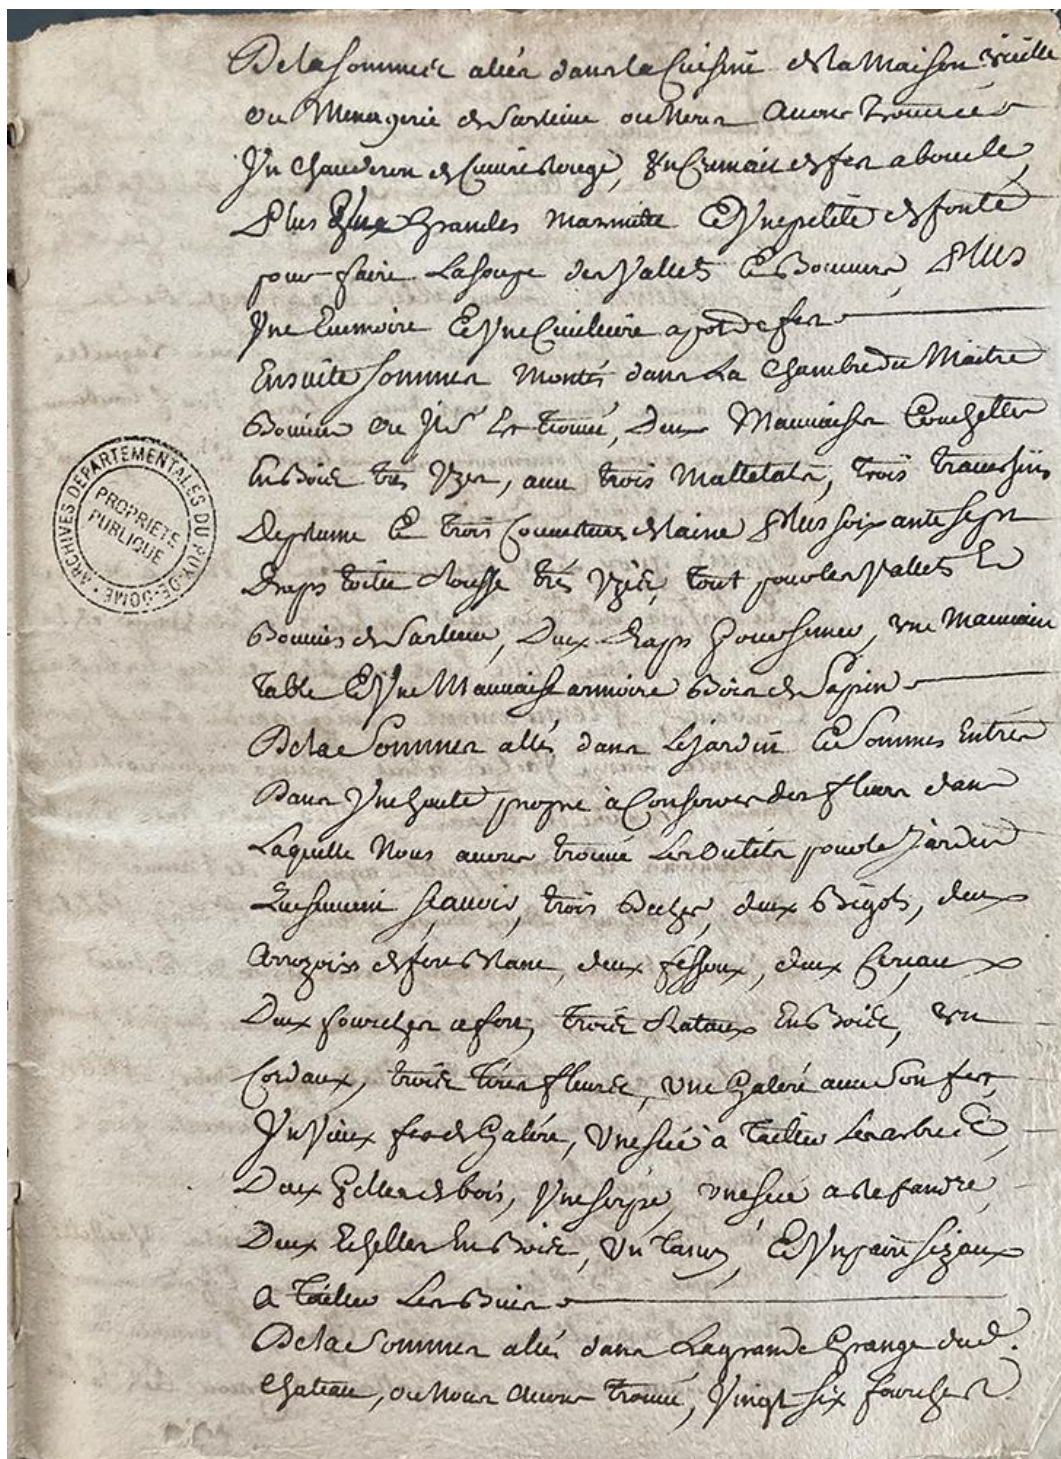 De la sommes allés dans la Cuisine de la Maison vieille
ou Menagerie de Sarlieve ou Nous avons trouvés
Un Chauderon de Cuivre Rouge, Un Cumait de fer a boucle,
Plus deux Grandes marmitte Et Une petite de fonte
pour faire La soupe des Vallets Et Bouviers, Plus
Une Ecumoire Et Une Cuilliere a pot de fer
Ensuite sommes Montés dans La Chambre du Maitre
Bouvier ou Il s'est trouvé, Deux Mauvaises Couchettes
En Bois trés Uzés, avec trois Mattelats, trois traversins
De plume Et trois Couvertures de laine Plus soixante sept
Draps toille Rousse trés Uzés, tout pour les Vallets Et
Bouviers de Sarlieve, Deux Draps, une Mauvaise
Table Et Une Mauvaise armoire Bois de Sapin
De la Sommes allés dans Le Jardin Et Sommes Entrés
Dans Une Haute propre à Conserver des fleurs dans
Laquelle Nous avons trouvé Les Outils pour le Jardin
sçavoir, trois Beches, deux Bigots, deux
Arrozoirs de fer Blanc, deux féssoux, deux
Deux fourches a fort, trois Rataux En Bois, un
Cordaux, trois Tires fleurs, une Galere avec Son fer,
Un Vieux fer de Galére, Une sciè à Tailler Les arbres
Deux Pelles de bois, Une serpe, une scié a Refandre,
Deux Echelles En Bois, Un Et Un paire sizaux
A Tailler Les Buis
De la Sommes allés dans La grande Grange dud.
Chateau, ou Nous avons trouvé, Vingt six fourches
ARCHIVES DEPARTEMENTALES DU PUY-DE-DOME
PROPRIETE
PUBLIQUE